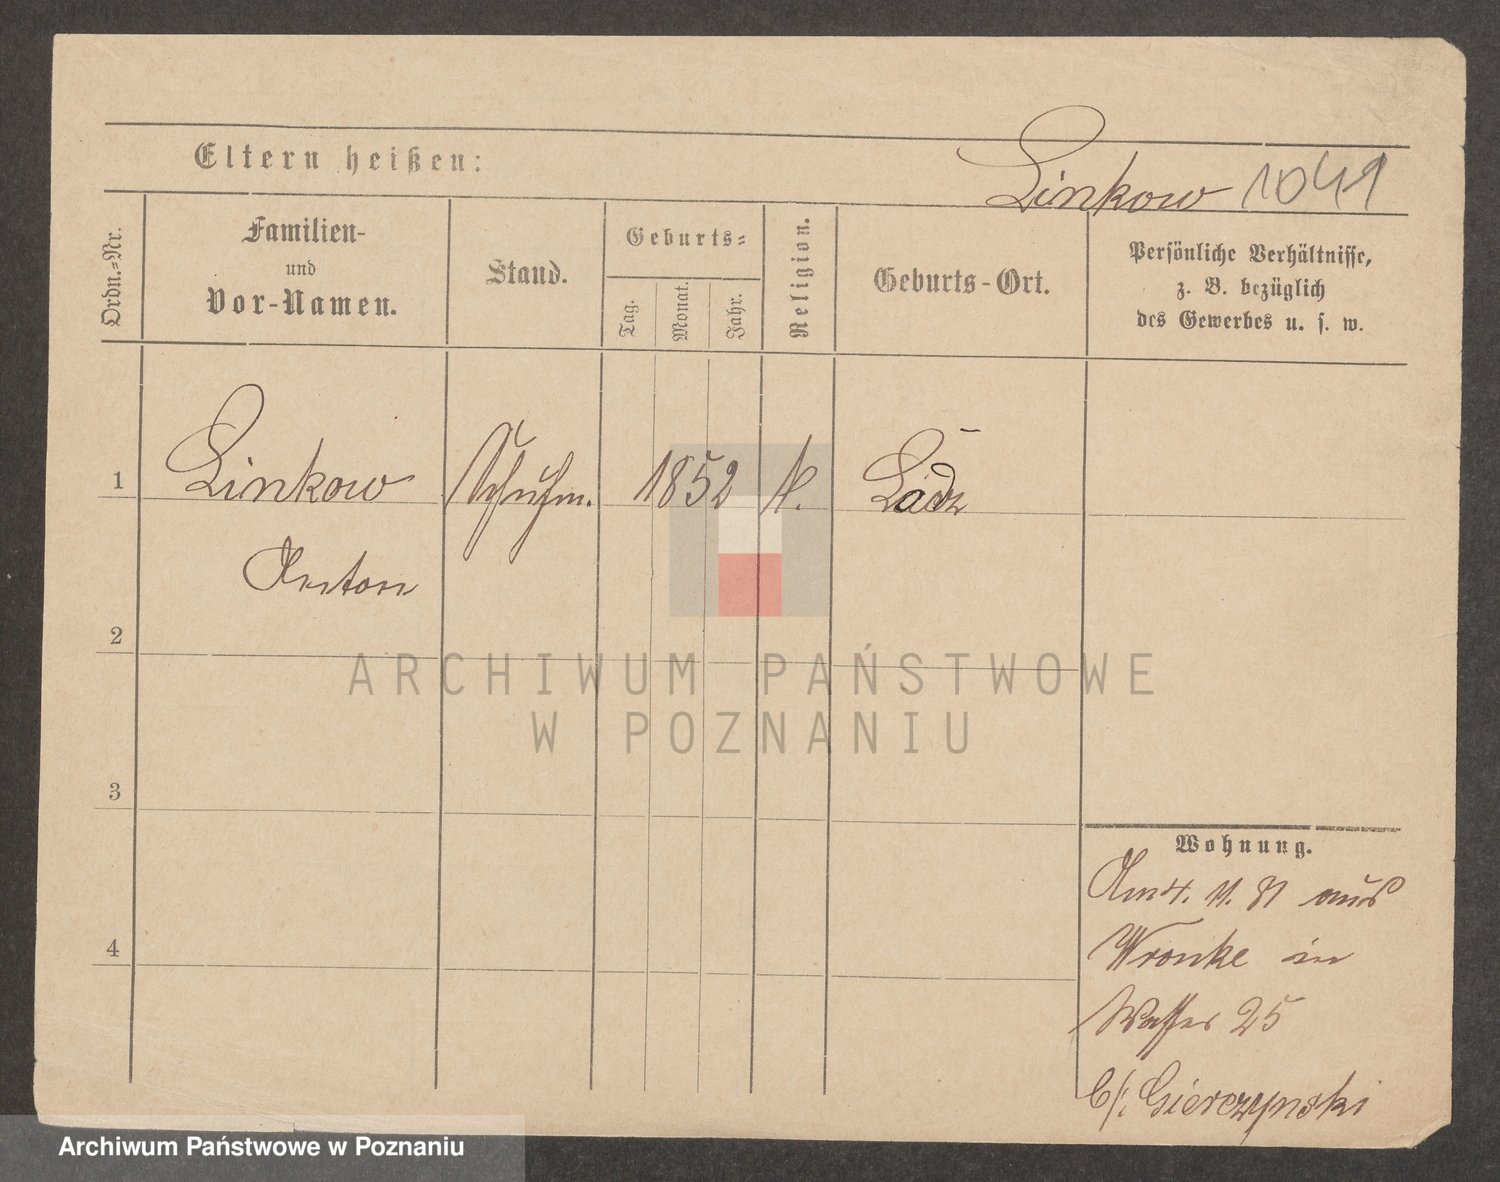 Eltern heißen:
Linkow 1041
Ordn.-Nr.
Familien-
und
Vor-Namen.
Stand.
Geburts-
Tag.
Monat.
Jahr.
Religion.
Geburts-Ort.
Persönliche Verhältnisse,
z. B. bezüglich
des Gewerbes u. s. w.
1 Linkow Schuhm. 1852 K. Lódz
Anton
2
3
4
Wohnung.
Am 4. 11. 81 aus
Wronke in
Wasser 25
b/. Gierczynski
ARCHIWUM PAŃSTWOWE
W POZNANIU
Archiwum Państwowe w Poznaniu